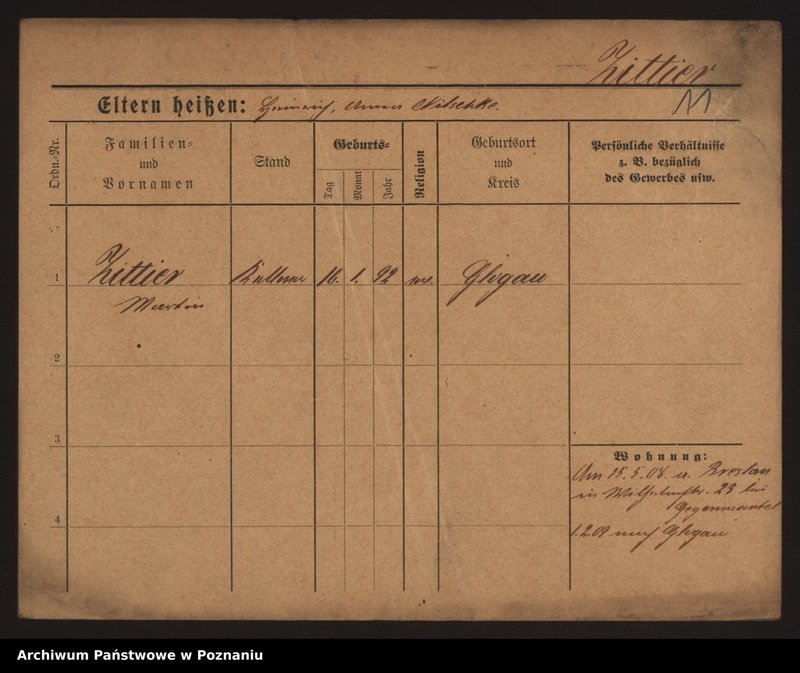 Zittier
11
Eltern heißen: Heinrich, Anna Nitschke.
Ordn.-Nr.
Familien-
und
Vornamen
Stand
Geburts-
Tag
Monat
Jahr
Religion
Geburtsort
und
Kreis
Persönliche Verhältnisse
z. B. bezüglich
des Gewerbes usw.
1
Zittier
Kellner
16. 1. 92
Glogau
Martin
2
3
4
Wohnung:
Am 15.5.08. a. Breslau
in Wilhelmstr. 23 bei
1.2.09 nach Glogau
Archiwum Państwowe w Poznaniu